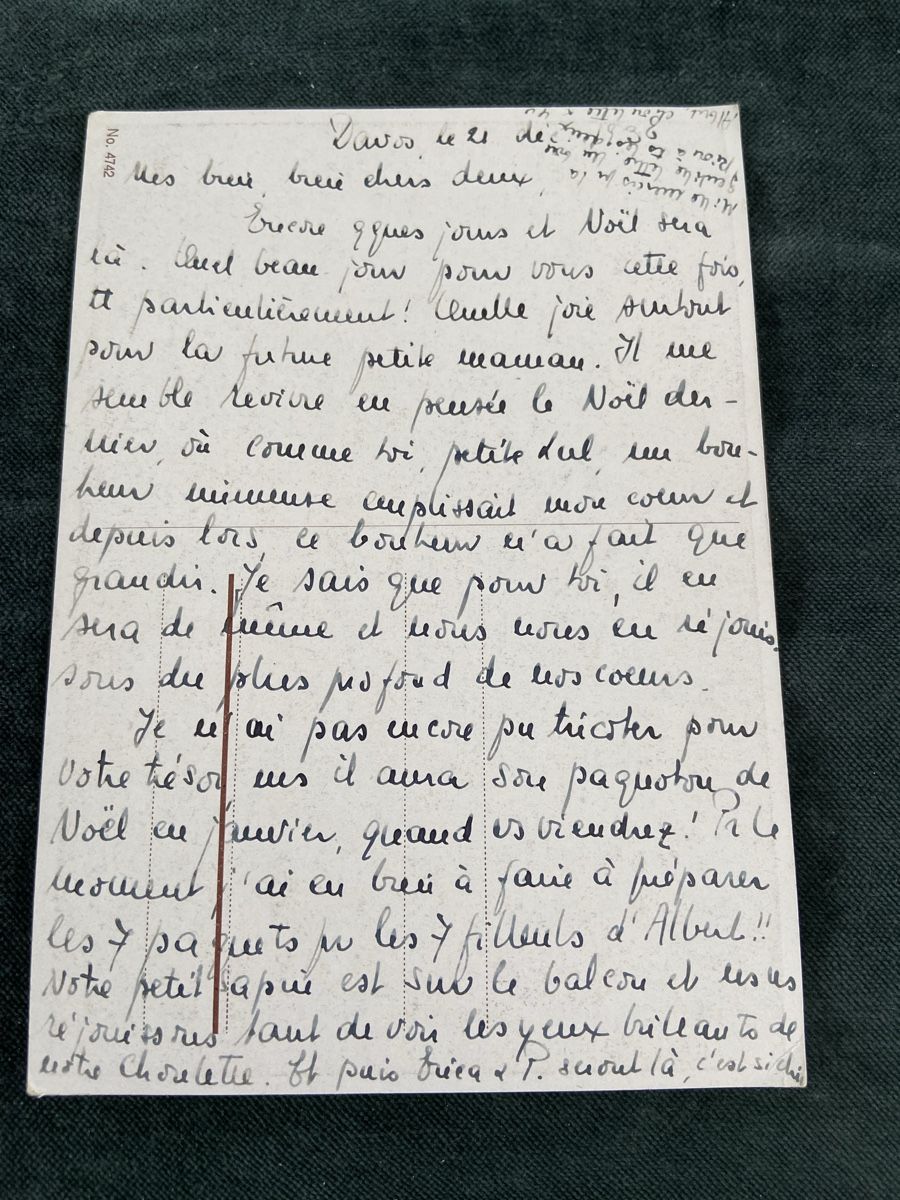 No. 4742
Davos, le 21 dé
Mes bien, bien chers deux,
Encore qques jours et Noël sera
là. Quel beau jour pour vous cette fois,
tt particulièrement! Quelle joie surtout
pour la future petite maman. Il me
semble revivre en pensée le Noël der-
nier, où comme toi, petite Lul, un bon-
heur immense emplissait mon coeur et
depuis lors, ce bonheur n'a fait que
grandir. Je sais que pour toi, il en
sera de même et nous nous en réjouis-
sons du plus profond de nos coeurs.
Je n'ai pas encore pu tricoter pour
votre trésor, ms il aura son paqueton de
Noël en janvier, quand vs viendrez! Pr le
moment j'ai eu bien à faire à préparer
les 7 paquets pr les 7 filleuls d'Albert!!
Notre petit sapin est sur le balcon et ns ns
réjouissons tant de voir les yeux brillants de
notre Choulette. Et puis Erica & P. seront là, c'est si chic
Mille mercis pr ta
gentille lettre. Un